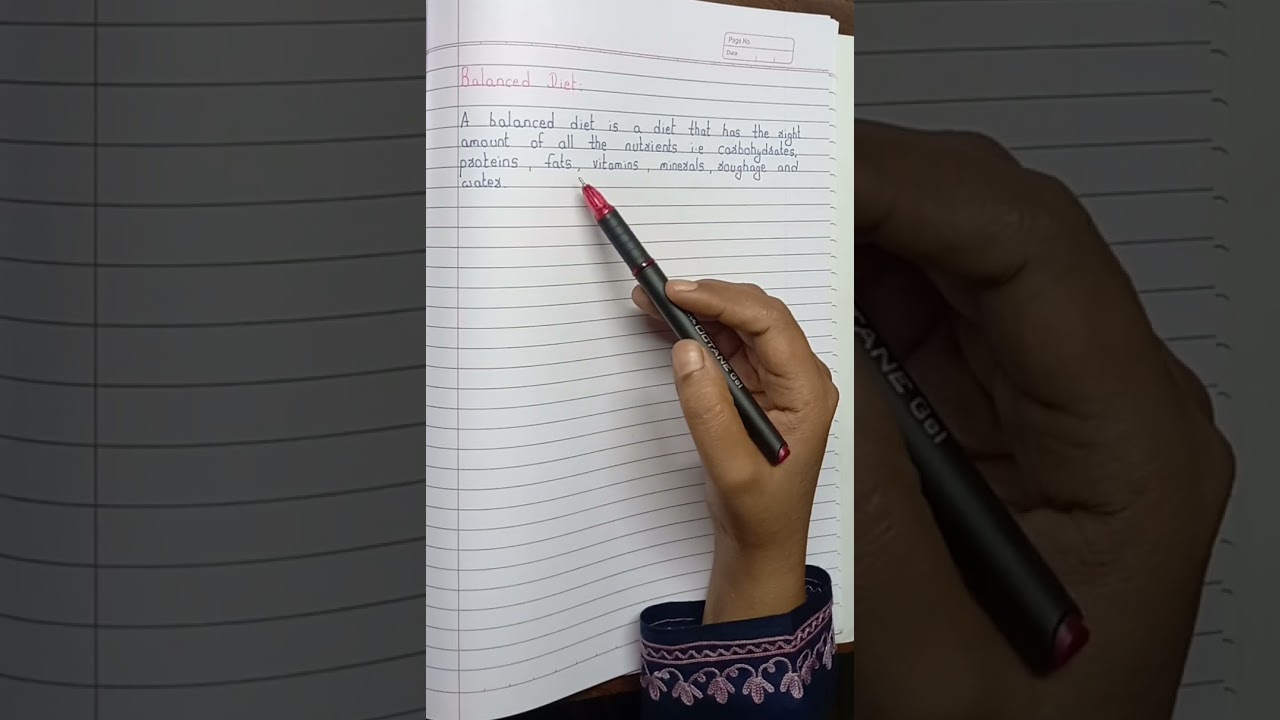 Page No.
Date
Balanced Diet:
A balanced diet is a diet that has the right
amount of all the nutrients i.e carbohydrates,
proteins, fats, vitamins, minerals, roughage and
water.
OCTANE Gel
TANE Gel